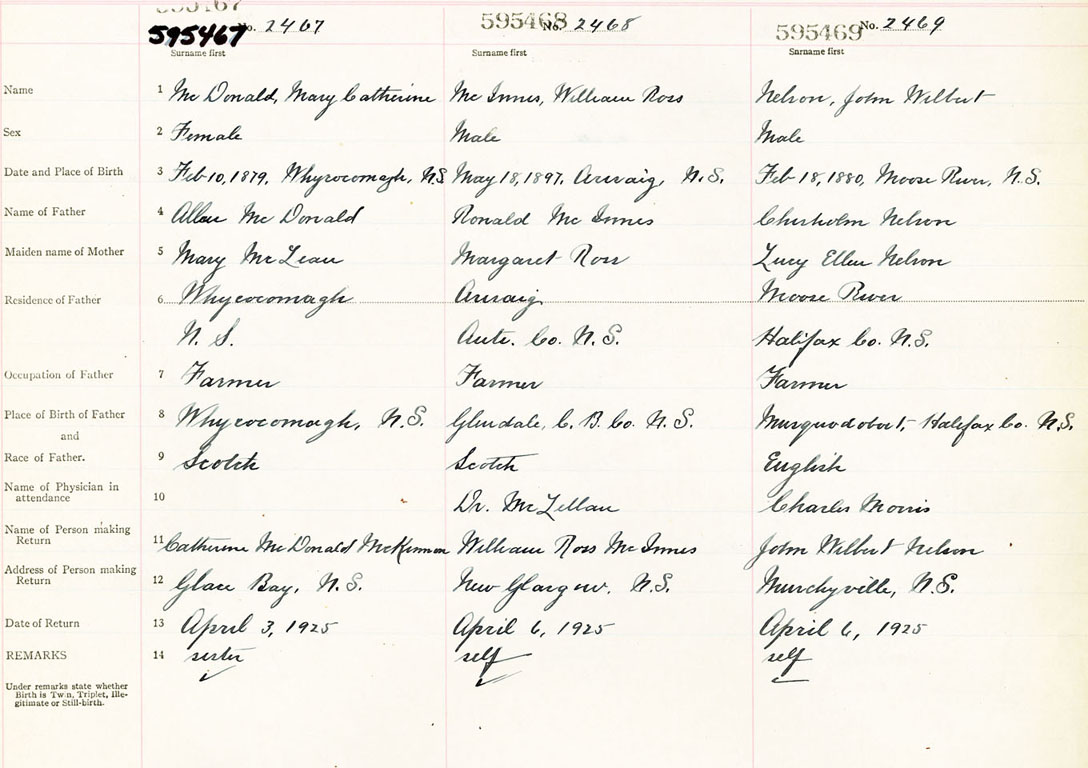 595467 No. 2467 595468 No. 2468 595469 No. 2469
Surname first Surname first Surname first
Name 1 Mc Donald, Mary Catherine Mc Innes, William Ross Nelson, John Wilbert
Sex 2 Female Male Male
Date and Place of Birth 3 Feb 10, 1879, Whycocomagh, N.S. May 18, 1897, Arisaig, N.S. Feb 18, 1880, Moose River, N.S.
Name of Father 4 Allan Mc Donald Ronald Mc Innes Chisholm Nelson
Maiden name of Mother 5 Mary McLean Margaret Ross Lucy Ellen Nelson
Residence of Father 6 Whycocomagh Arisaig Moose River
N. S. Ante. Co. N.S. Halifax Co. N.S.
Occupation of Father 7 Farmer Farmer Farmer
Place of Birth of Father 8 Whycocomagh, N.S. Glendale, C. B. Co. N.S. Musquodoboit, Halifax Co. N.S.
and
Race of Father. 9 Scotch Scotch English
Name of Physician in
attendance 10 Dr. McLellan Charles Morris
Name of Person making
Return 11 Catherine McDonald McKinnon William Ross McInnes John Wilbert Nelson
Address of Person making
Return 12 Glace Bay, N.S. New Glasgow, N.S. Murchyville, N.S.
Date of Return 13 April 3, 1925 April 6, 1925 April 6, 1925
REMARKS 14 sister self self
Under remarks state whether
Birth is Twin, Triplet, Ille-
gitimate or Still-birth.